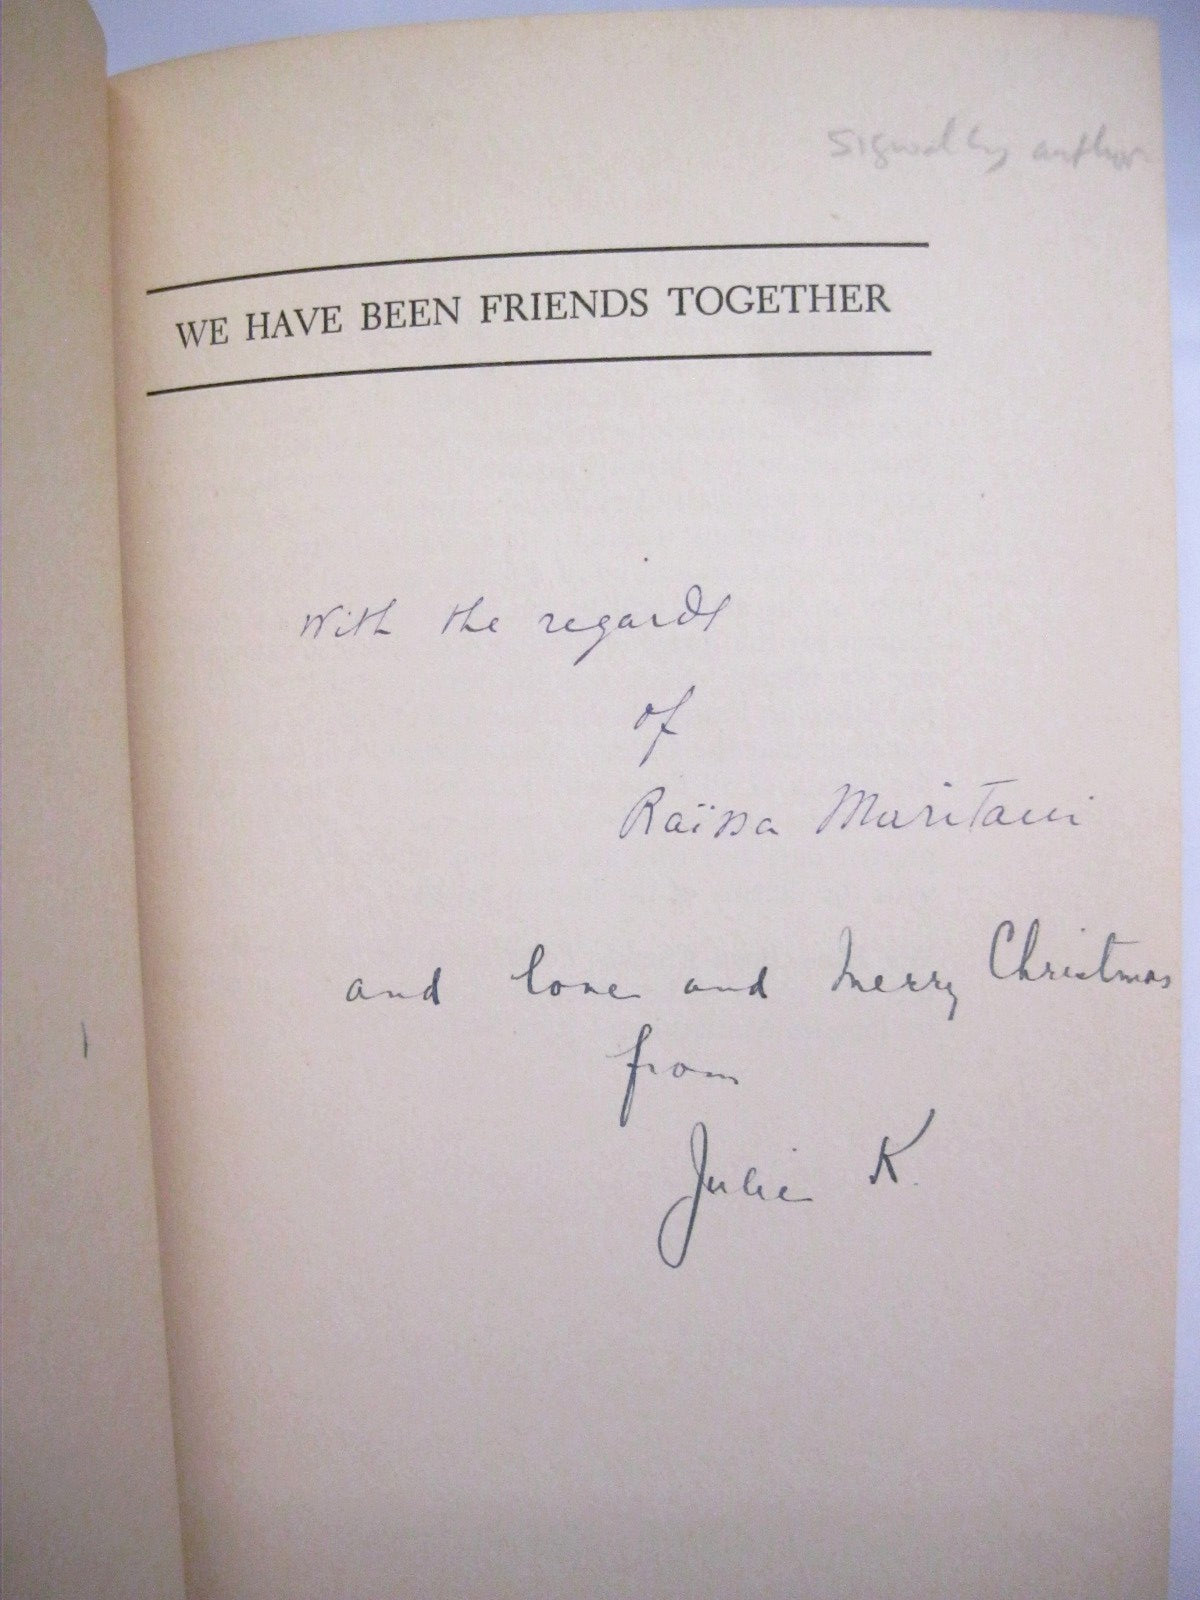 Signed by author
WE HAVE BEEN FRIENDS TOGETHER
With the regards
of
Raïssa Maritain
and love and Merry Christmas
from
Julie K.